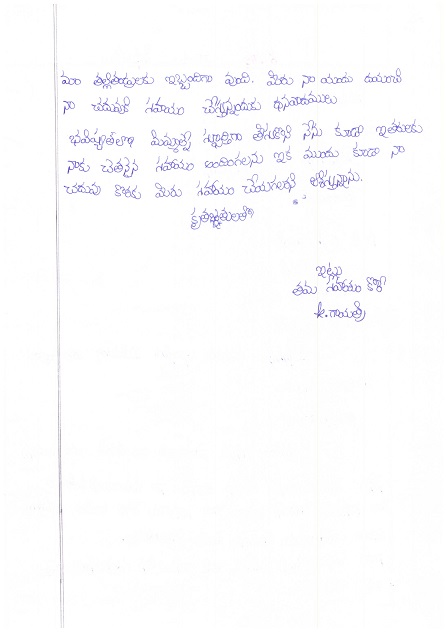 మా తల్లితండ్రులకు ఇబ్బందిగా వుంది. మీరు నా యందు దయఉంచి
నా చదువుకి సహాయం చేస్తున్నందుకు ధన్యవాదములు
భవిష్యత్‌లో మిమ్మల్ని స్ఫూర్తిగా తీసుకొని నేను కూడా ఇతరులకు
నాకు చేతనైన సహాయం అందించగలను ఇక ముందు కూడా నా
చదువు కొరకు మీరు సహాయం చేయగలరని ఆశిస్తున్నాను.
కృతజ్ఞతలతో
ఇట్లు
తమ సహాయం కోరే
గాయత్రి